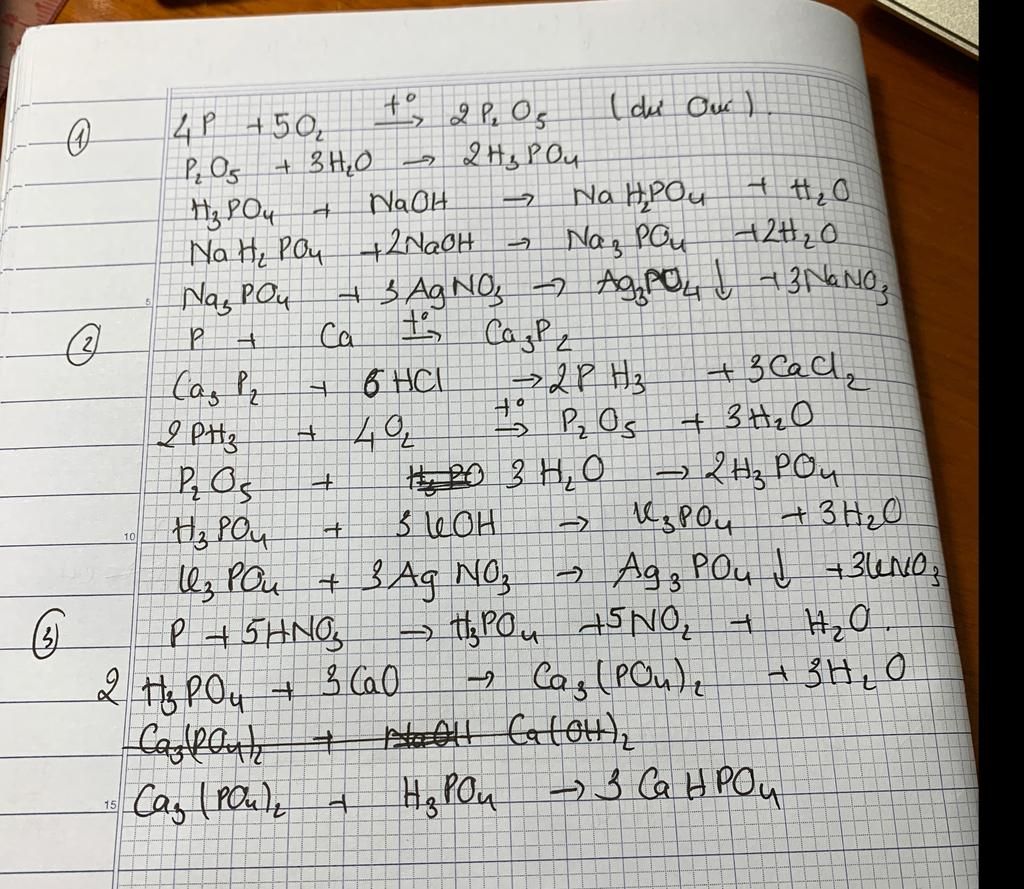 ① 4P + 5O₂ t° → 2P₂O₅ (dư Oxi).
P₂O₅ + 3H₂O → 2H₃PO₄
H₃PO₄ + NaOH → NaH₂PO₄ + H₂O
NaH₂PO₄ + 2NaOH → Na₃PO₄ + 2H₂O
5 Na₃PO₄ + 3AgNO₃ → Ag₃PO₄ ↓ + 3NaNO₃
② P + Ca t° → Ca₃P₂
Ca₃P₂ + 6HCl → 2PH₃ + 3CaCl₂
2PH₃ + 4O₂ t° → P₂O₅ + 3H₂O
P₂O₅ + 3H₂O → 2H₃PO₄
10 H₃PO₄ + 3KOH → K₃PO₄ + 3H₂O
K₃PO₄ + 3AgNO₃ → Ag₃PO₄ ↓ + 3KNO₃
③ P + 5HNO₃ → H₃PO₄ + 5NO₂ + H₂O.
2H₃PO₄ + 3CaO → Ca₃(PO₄)₂ + 3H₂O
Ca₃(PO₄)₂ + NaOH Ca(OH)₂
15 Ca₃(PO₄)₂ + H₃PO₄ → 3CaHPO₄